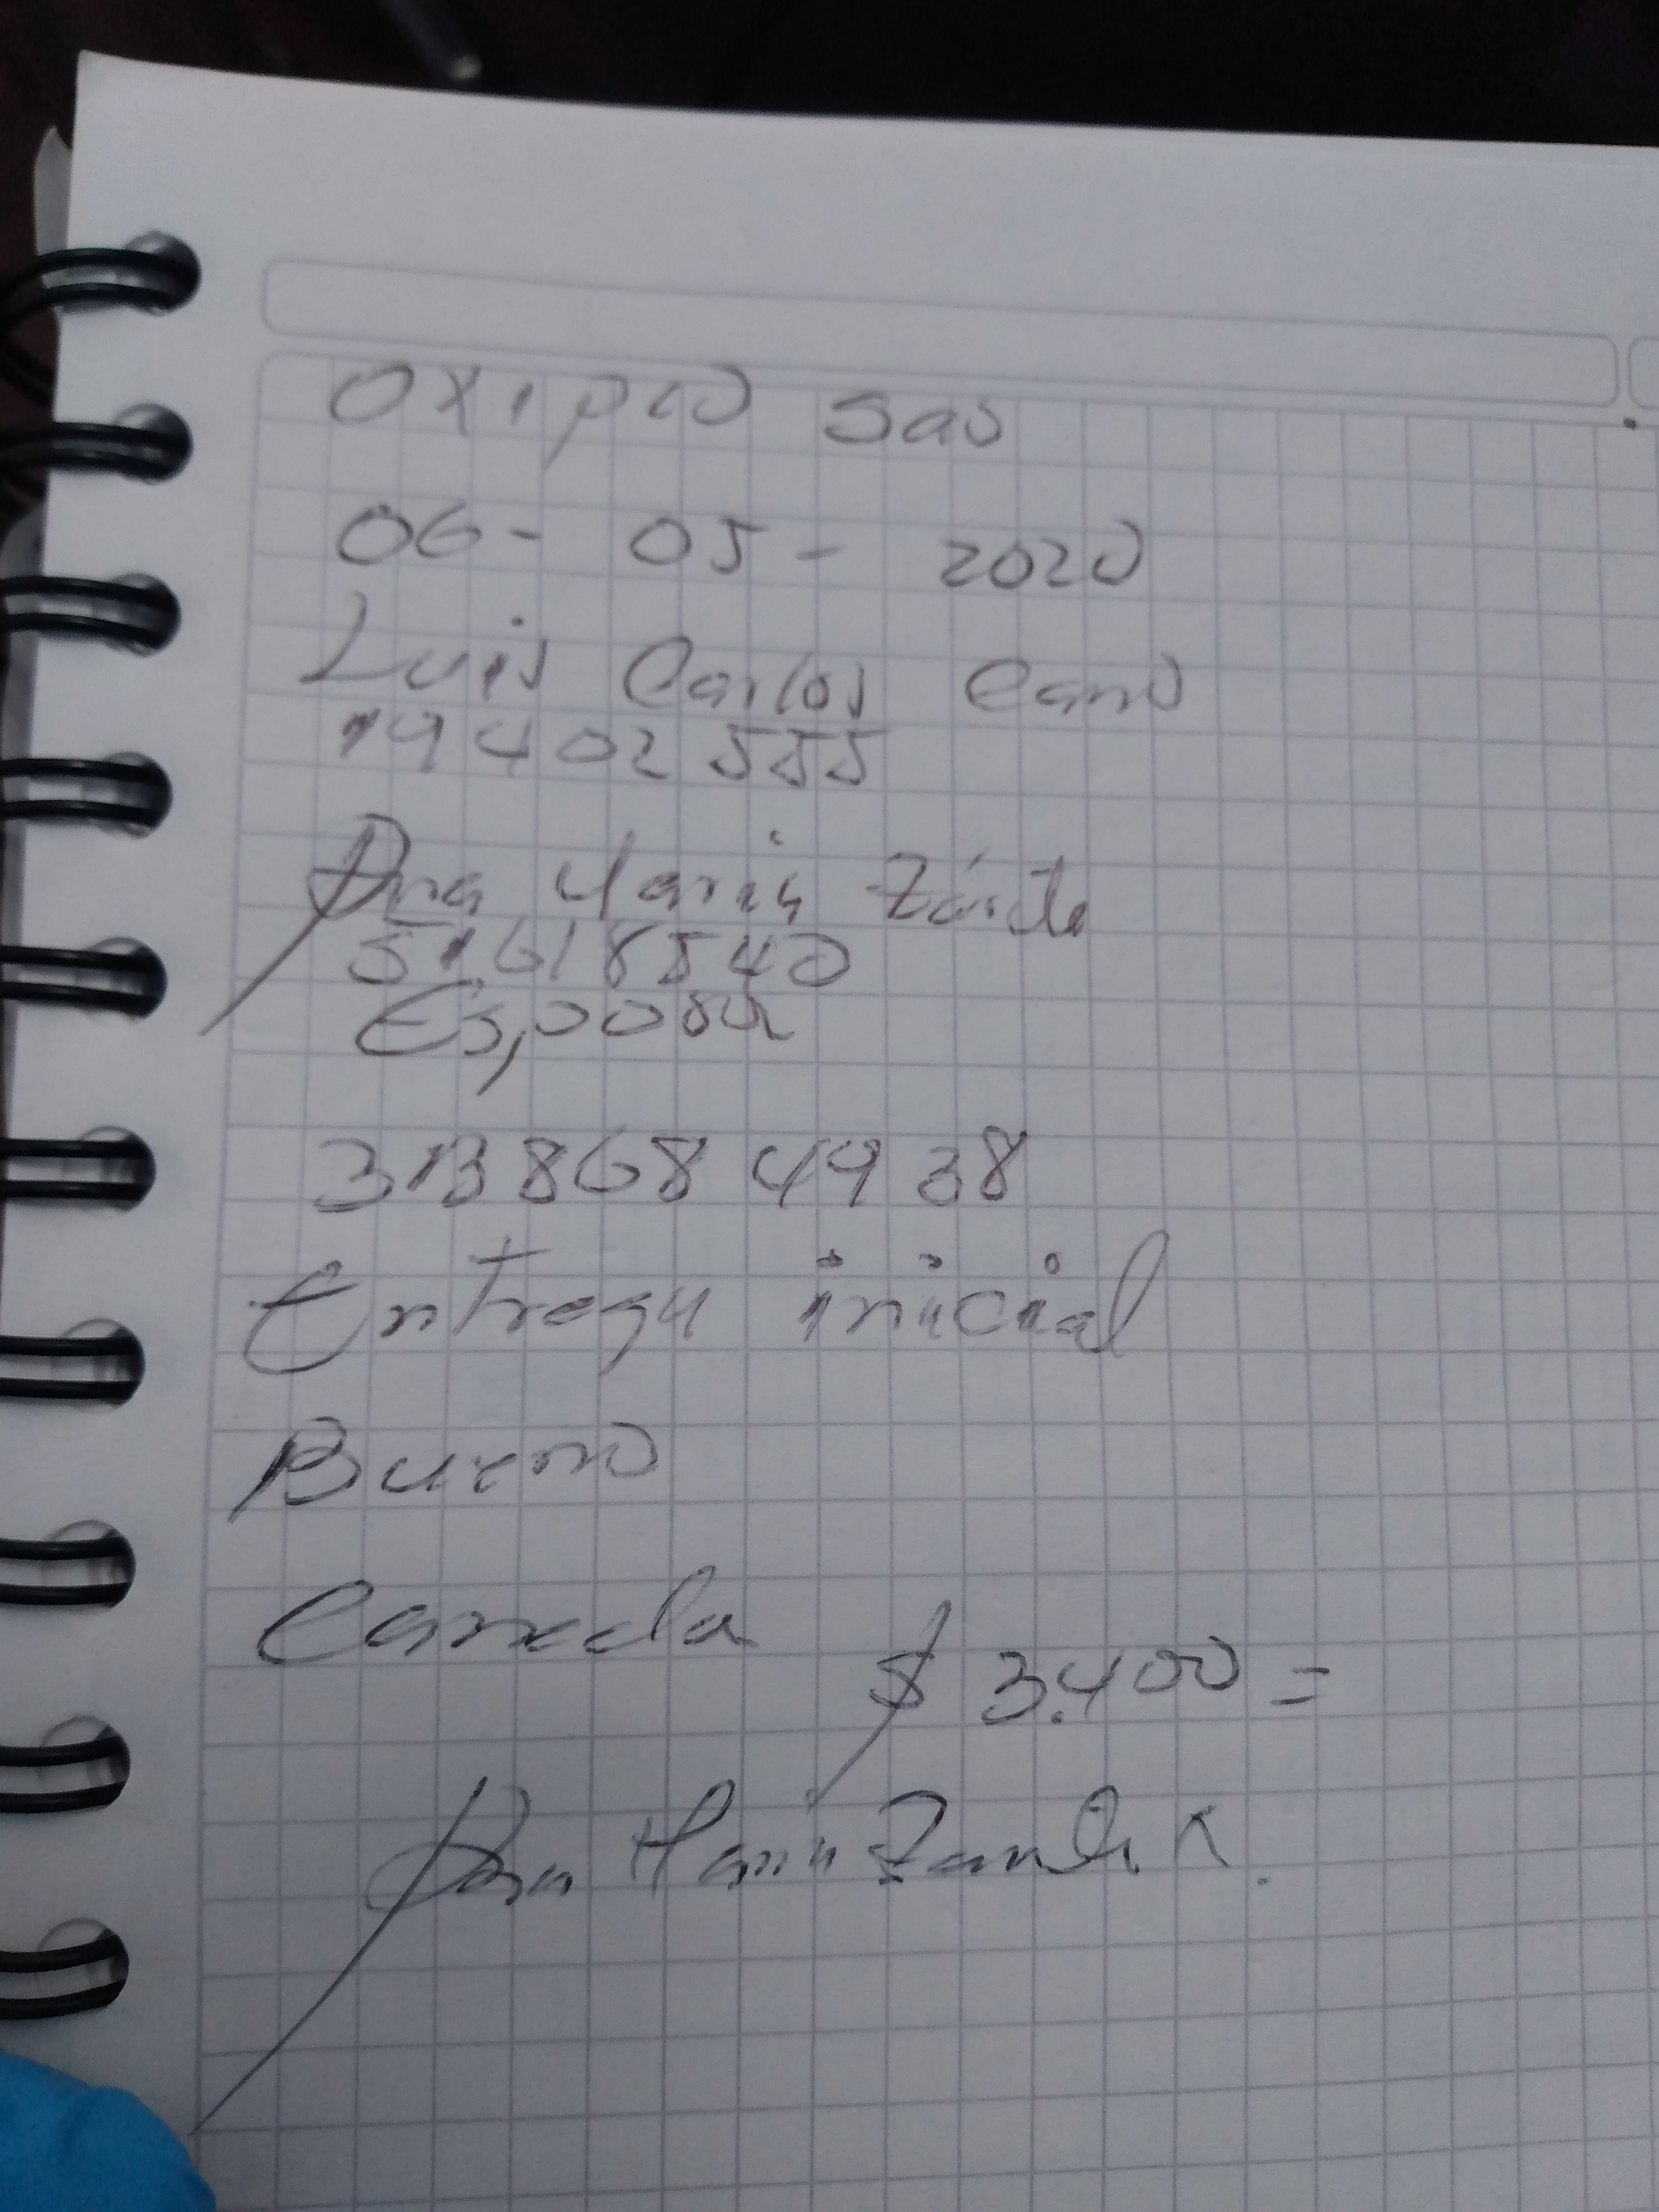 Oxipro sas
06 - 05 - 2020
Luis Carlos Cano
19402555
Ana Maria Zárate
51618540
Esposa
313 868 4938
Entrega inicial
Bueno
Canecla
$ 3.400 =
Ana Maria Zarate